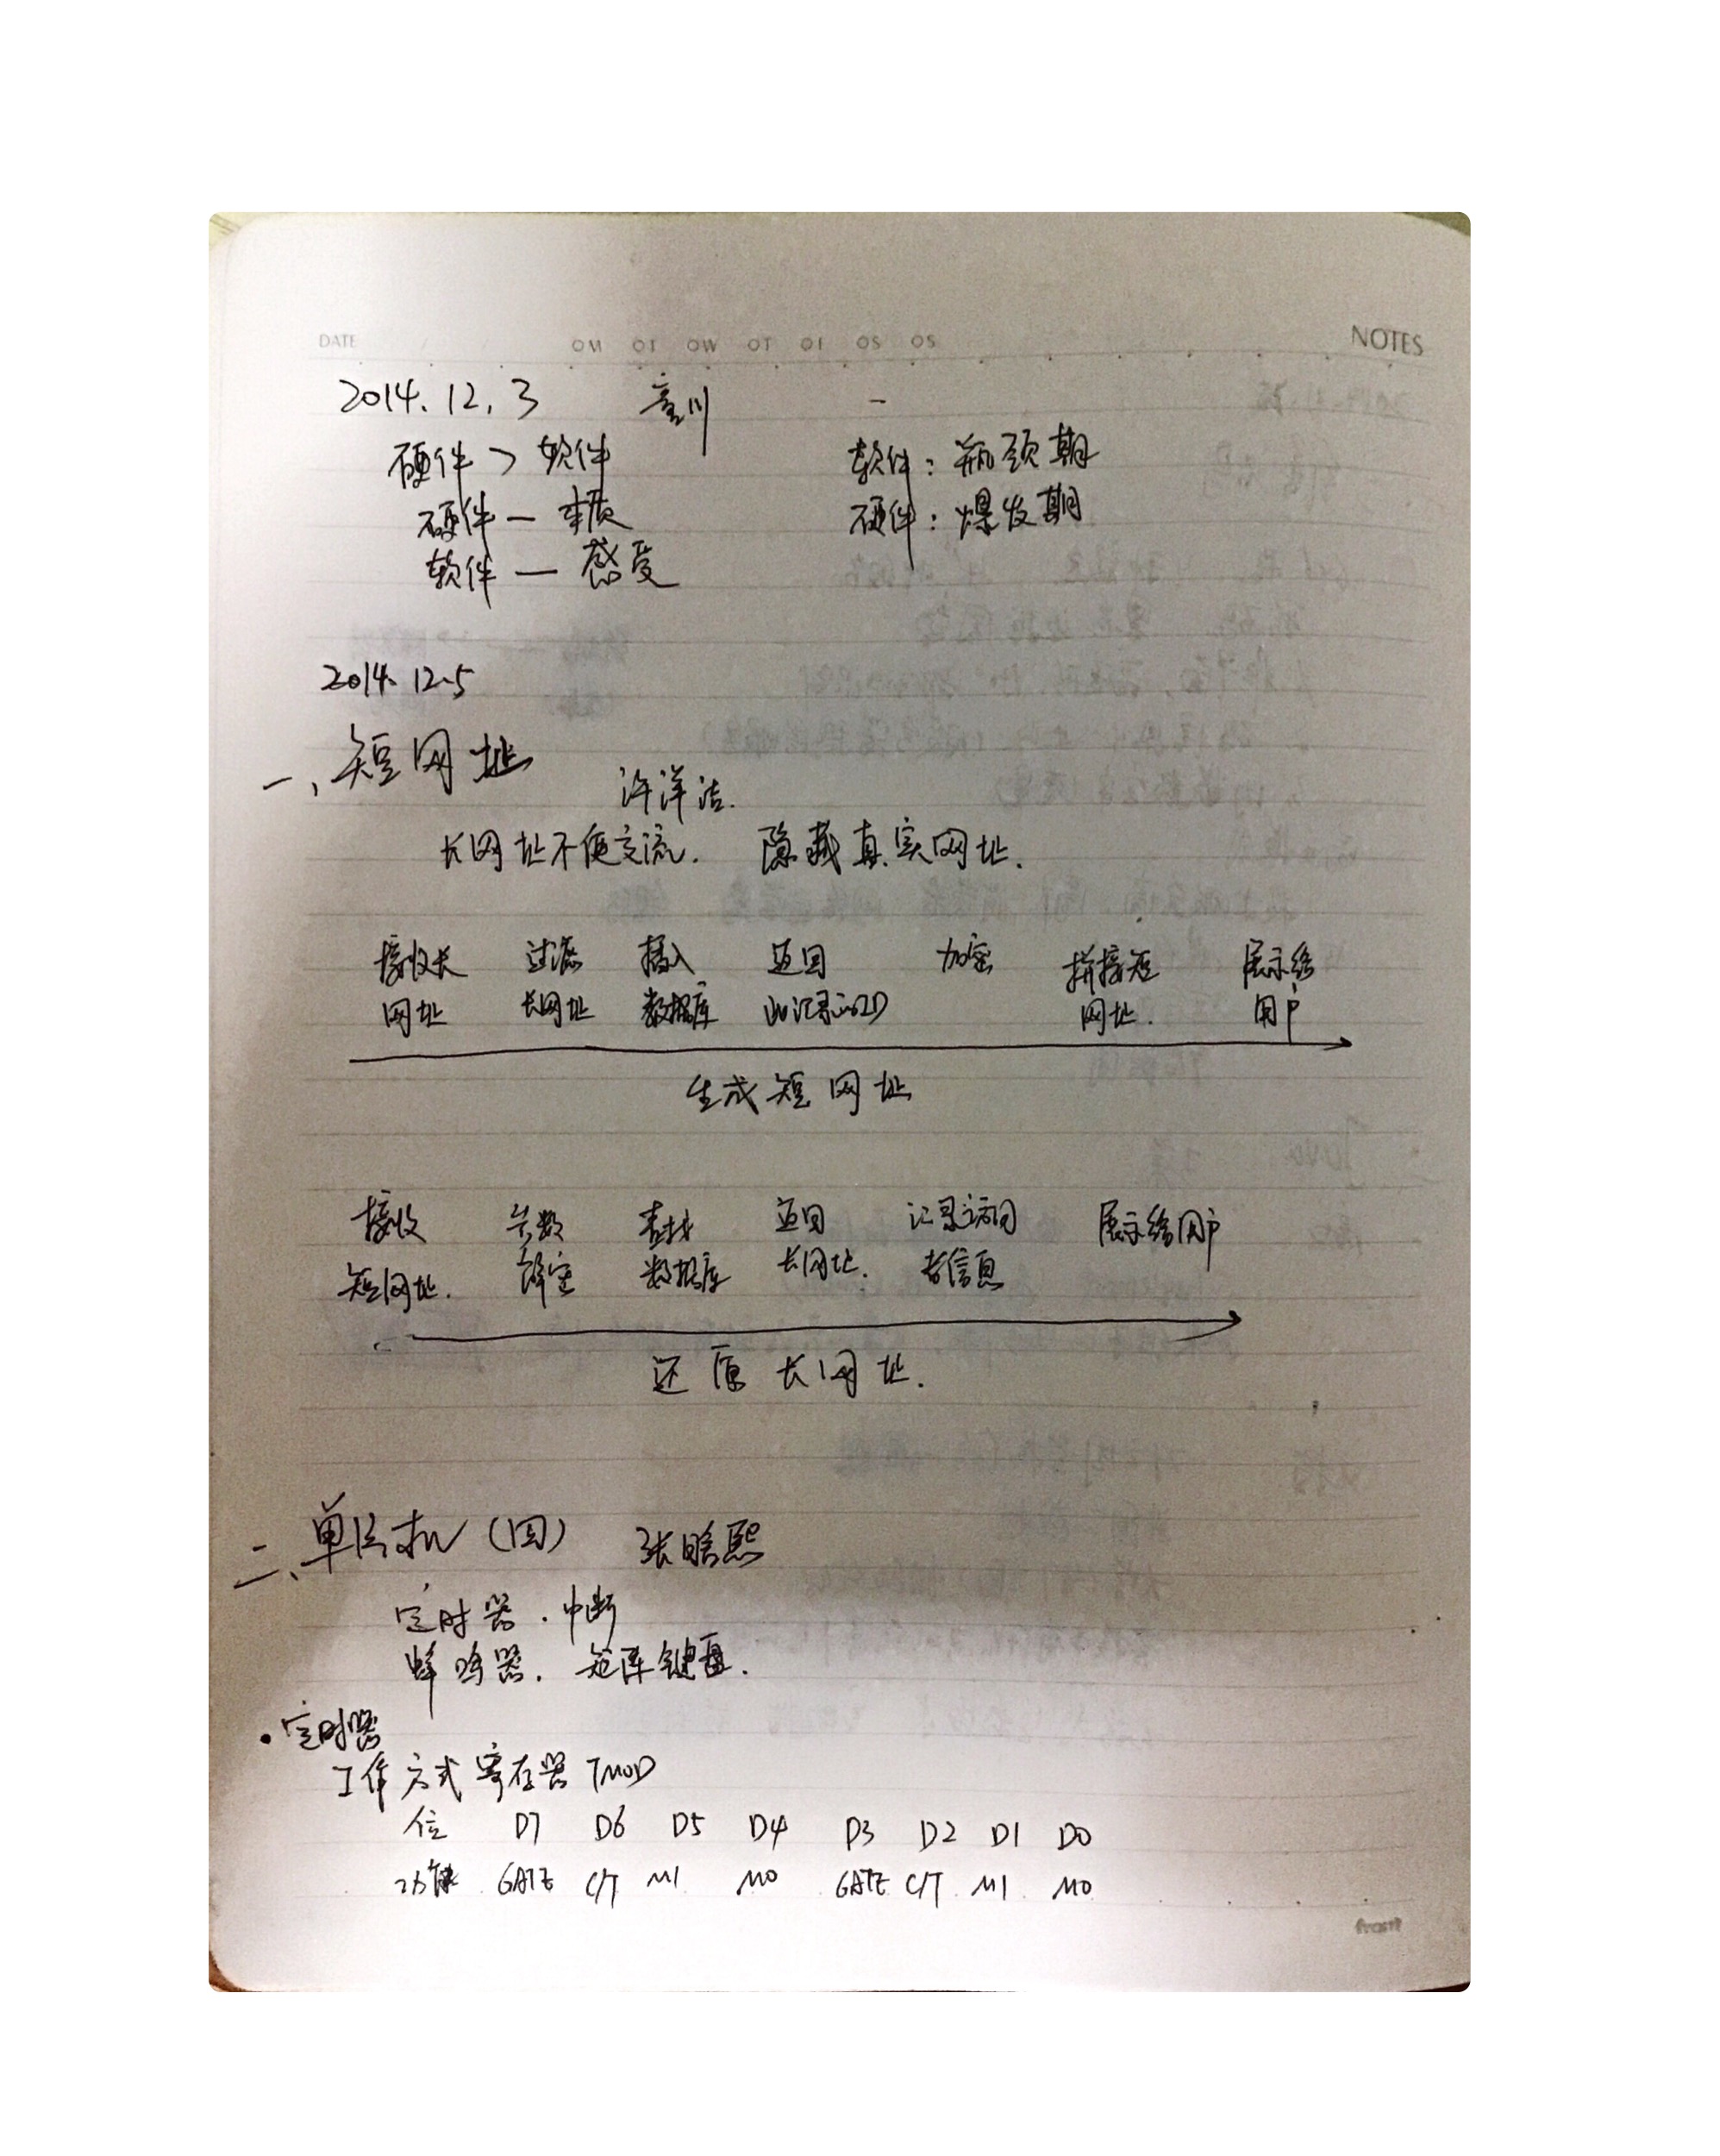 DATE OM OT OW OT OF OS OS NOTES
2014.12.3 童川
硬件 > 软件 软件：瓶颈期
硬件 — 本质 硬件：爆发期
软件 — 感受
2014.12.5
一、短网址
许洋洁.
长网址不便交流. 隐藏真实网址.
接收长 过滤 插入 返回 加密 拼接短 展示给
网址 长网址 数据库 此记录的ID 网址. 用户
生成短网址
接收 查找 返回 记录访问 展示给用户
短网址. 数据库 长网址. 者信息
还原长网址.
二、单片机（四） 张晗熙
定时器. 中断
蜂鸣器. 矩阵键盘.
• 定时器
工作方式寄存器 TMOD
位 D7 D6 D5 D4 D3 D2 D1 D0
功能 GATE C/T M1 M0 GATE C/T M1 M0